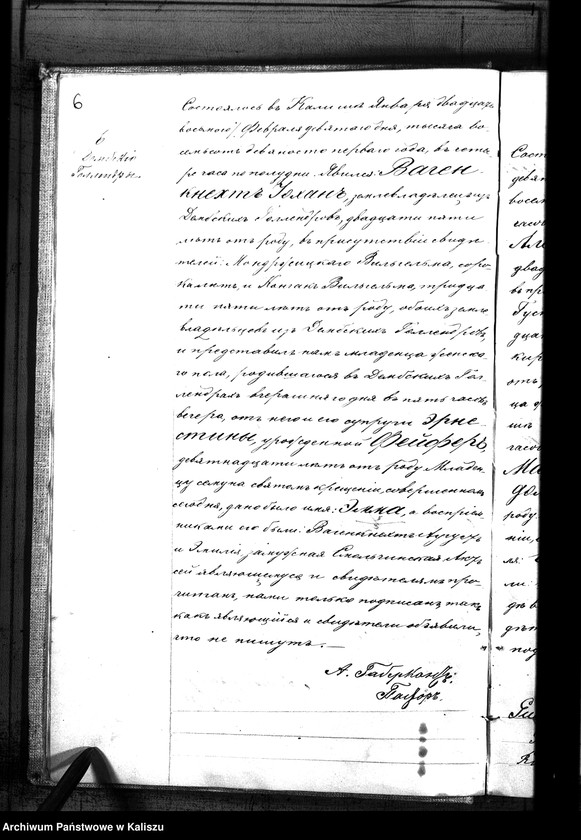 6
6
Дембскіе
Голлендры.
Состоялось въ Калишѣ Января двадцать
восьмого/Февраля девятого дня, тысяча во
семьсотъ девяносто перваго года, въ четы
ре часа по полудни. Явился Ваген
кнехтъ Іоханъ, землевладѣлецъ изъ
Дембскихъ Голлендровъ, двадцати пяти
лѣтъ отъ роду, въ присутствіи свидѣ
телей: Вильгельма, соро
ка лѣтъ, и Вильгельма, тридца
ти пяти лѣтъ отъ роду, обоихъ земле
владѣльцевъ изъ Дембскихъ Голлендровъ,
и представилъ намъ младенца женска
го пола, родившагося въ Дембскихъ Гол
лендрахъ вчерашняго дня въ пять часовъ
вечера, отъ него и его супруги Эрне
стины, урожденной Фейферъ,
девятнадцати лѣтъ отъ роду. Младен
цу сему на святомъ крещеніи, совершенномъ
сегодня, дано было имя: Эмма, а воспріем
никами его были: Вагенкнехтъ Августъ
и Эмилія, замужная Актъ
сей являющемуся и свидѣтелямъ про
читанъ, нами только подписанъ такъ
какъ являющійся и свидѣтели объявили,
что не пишутъ. —
А. Габеркантъ:
Пасторъ.
Сост
девят
восем
часо
двад
въ пр
Густ
дца
отъ
ца
часов
роду
ніи,
ли
Archiwum Państwowe w Kaliszu